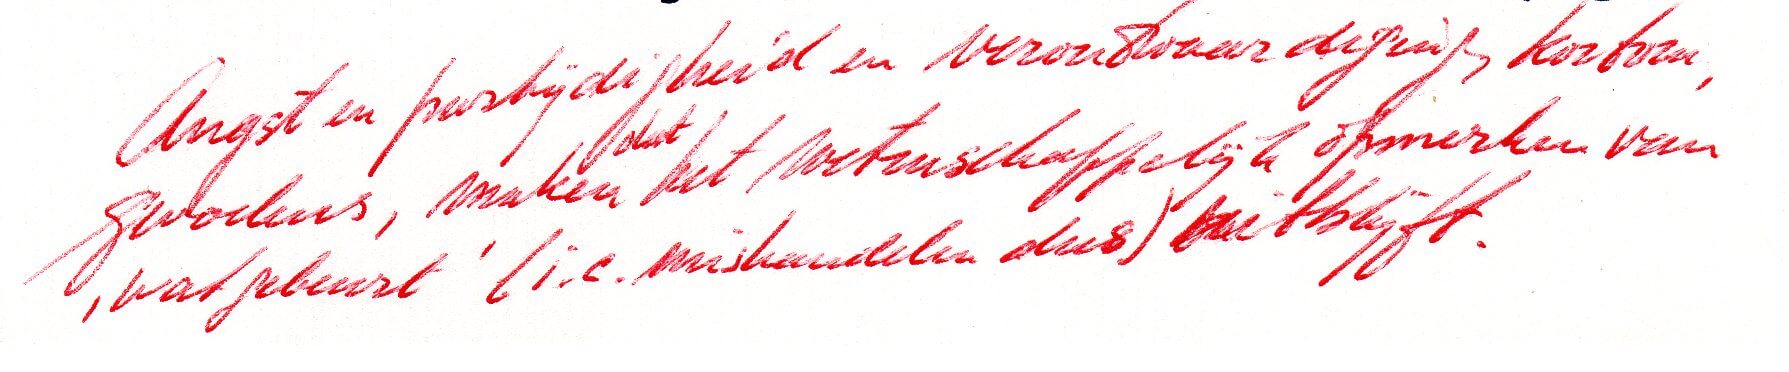 Angst en partijdigheid en verontwaardiging, kortom,
gevoelens, maken dat het wetenschappelijk opmerken van
‚wat gebeurt' (i.c. mishandelen dus) uitblijft.